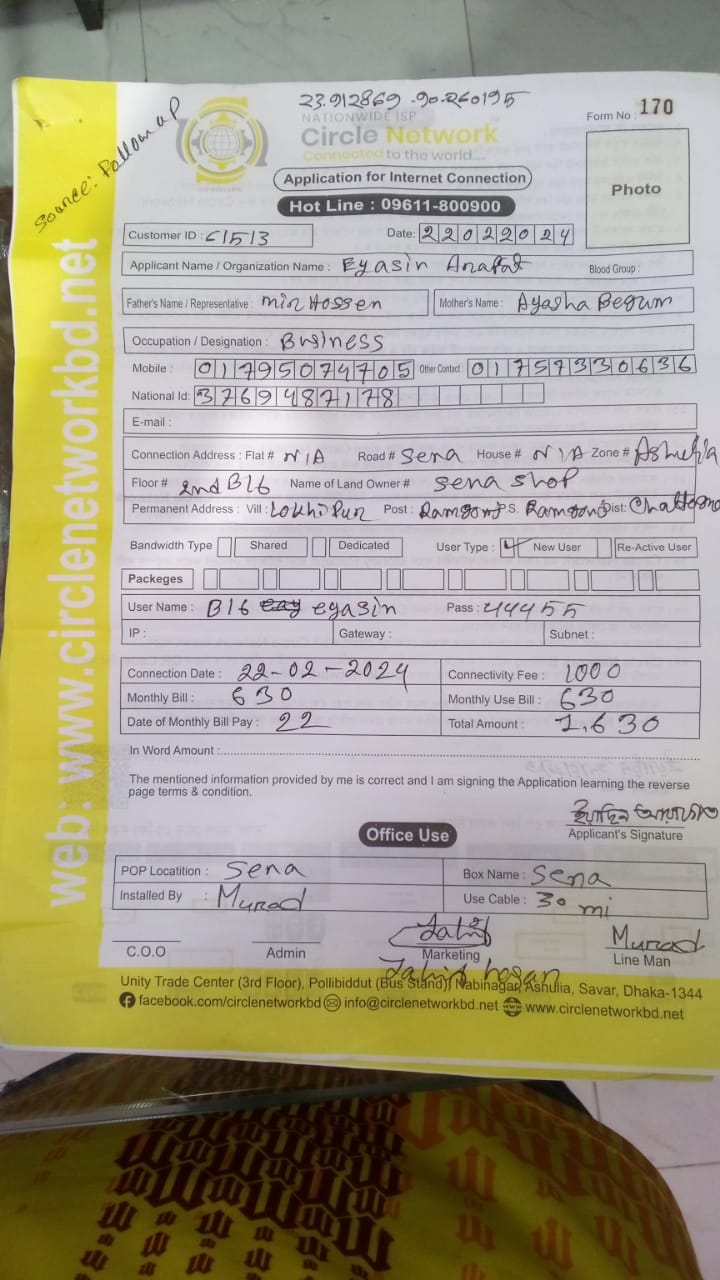 23.912869 .90.260195
Source: Follow up
NATIONWIDE ISP
Circle Network
Connected to the world...
Form No : 170
Application for Internet Connection
Photo
Hot Line : 09611-800900
Customer ID : C1513
Date: 22022024
Applicant Name / Organization Name : Eyasin Arafat Blood Group :
Father's Name / Representative : Mir Hossen Mother's Name : Ayasha Begum
Occupation / Designation : Business
Mobile : 01795074705 Other Contact : 01757330636
National Id: 3769487178
E-mail :
Connection Address : Flat # N/A Road # Sena House # N/A Zone # Ashulia
Floor # 2nd B16 Name of Land Owner # Sena Shop
Permanent Address : Vill : Lokhipur Post : P.S. Dist:
Bandwidth Type Shared Dedicated User Type : New User Re-Active User
Packeges
User Name : B16 eyasin Pass : 44455
IP : Gateway : Subnet :
Connection Date : 22-02-2024 Connectivity Fee : 1000
Monthly Bill : 630 Monthly Use Bill : 630
Date of Monthly Bill Pay : 22 Total Amount : 1,630
In Word Amount :
The mentioned information provided by me is correct and I am signing the Application learning the reverse
page terms & condition.
ইয়াছিন আরাফাত
Applicant's Signature
Office Use
POP Locatition : Sena Box Name : Sena
Installed By : Murad Use Cable : 30 mi
Murad
C.O.O Admin Marketing Line Man
Unity Trade Center (3rd Floor), Pollibiddut (Bus Stand), Nabinagar, Ashulia, Savar, Dhaka-1344
facebook.com/circlenetworkbd info@circlenetworkbd.net www.circlenetworkbd.net
web: www.circlenetworkbd.net